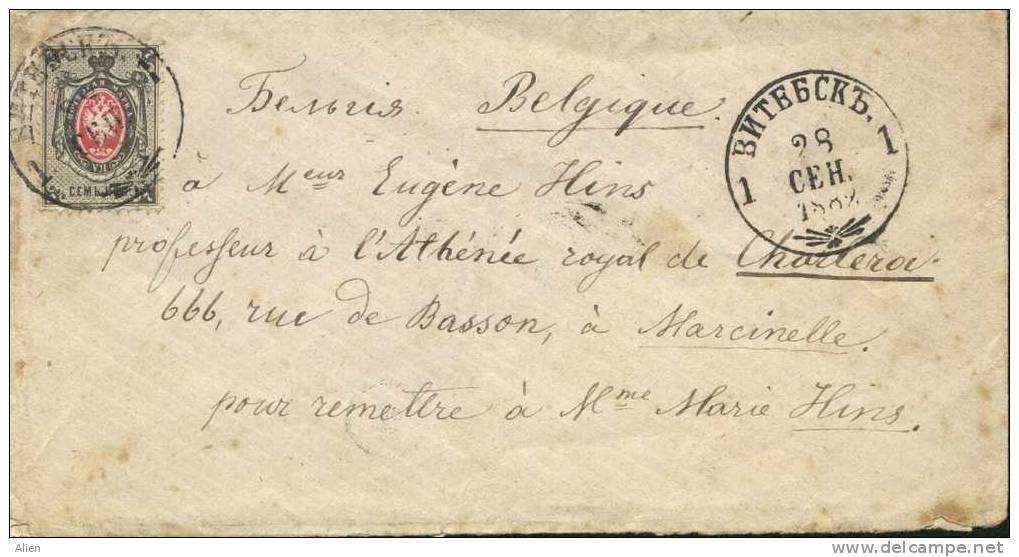 Бельгія Belgique.
à Meur Eugène Hins
professeur à l'Athénée royal de Charleroi
666, rue de Basson, à Marcinelle.
pour remettre à Mme Marie Hins.
ВИТЕБСКЪ.
1 1
28
СЕН.
1882
СЕМЬ
Alien
delcampe.net